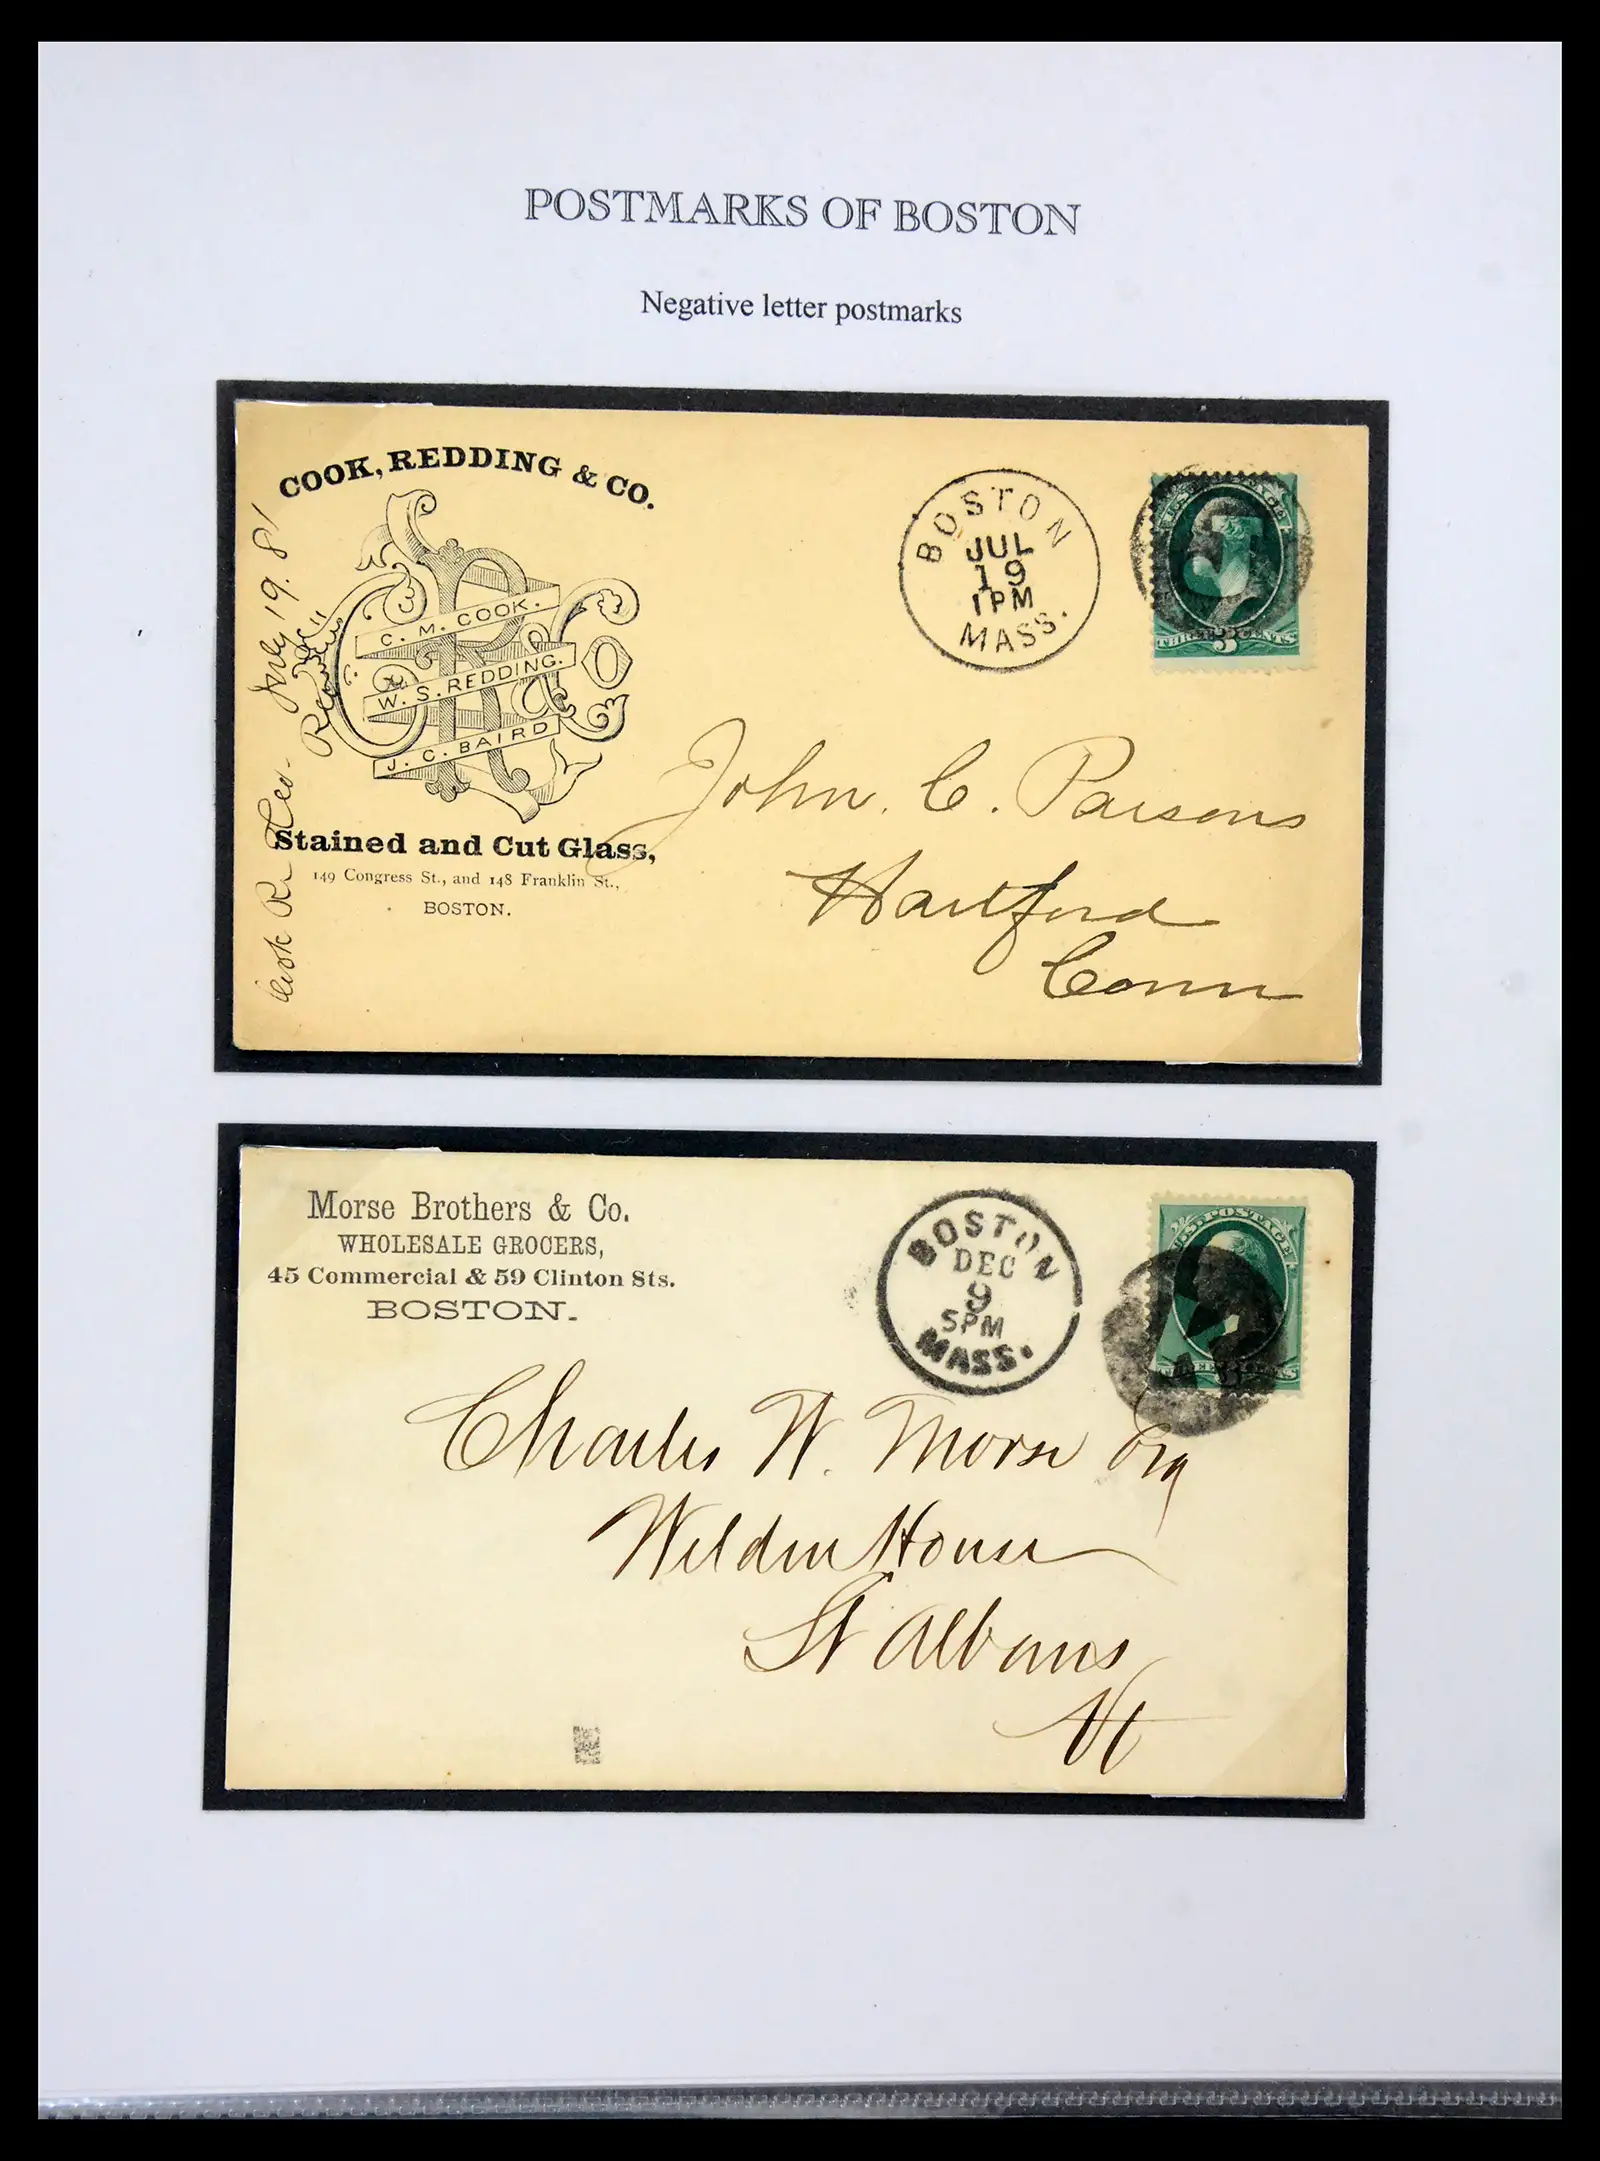 POSTMARKS OF BOSTON
Negative letter postmarks
COOK, REDDING & CO.
C. M. COOK.
W. S. REDDING.
J. C. BAIRD
Stained and Cut Glass,
149 Congress St., and 148 Franklin St.,
BOSTON.
July 19. 81
BOSTON
JUL
19
1PM
MASS.
U.S. POSTAGE
THREE 3 CENTS
John. C. Parsons
Hartford
Conn
Morse Brothers & Co.
WHOLESALE GROCERS,
45 Commercial & 59 Clinton Sts.
BOSTON.
BOSTON
DEC
9
5PM
MASS.
U.S. POSTAGE
THREE 3 CENTS
Charles W. Morse Esq
Welden House
St Albans
Vt